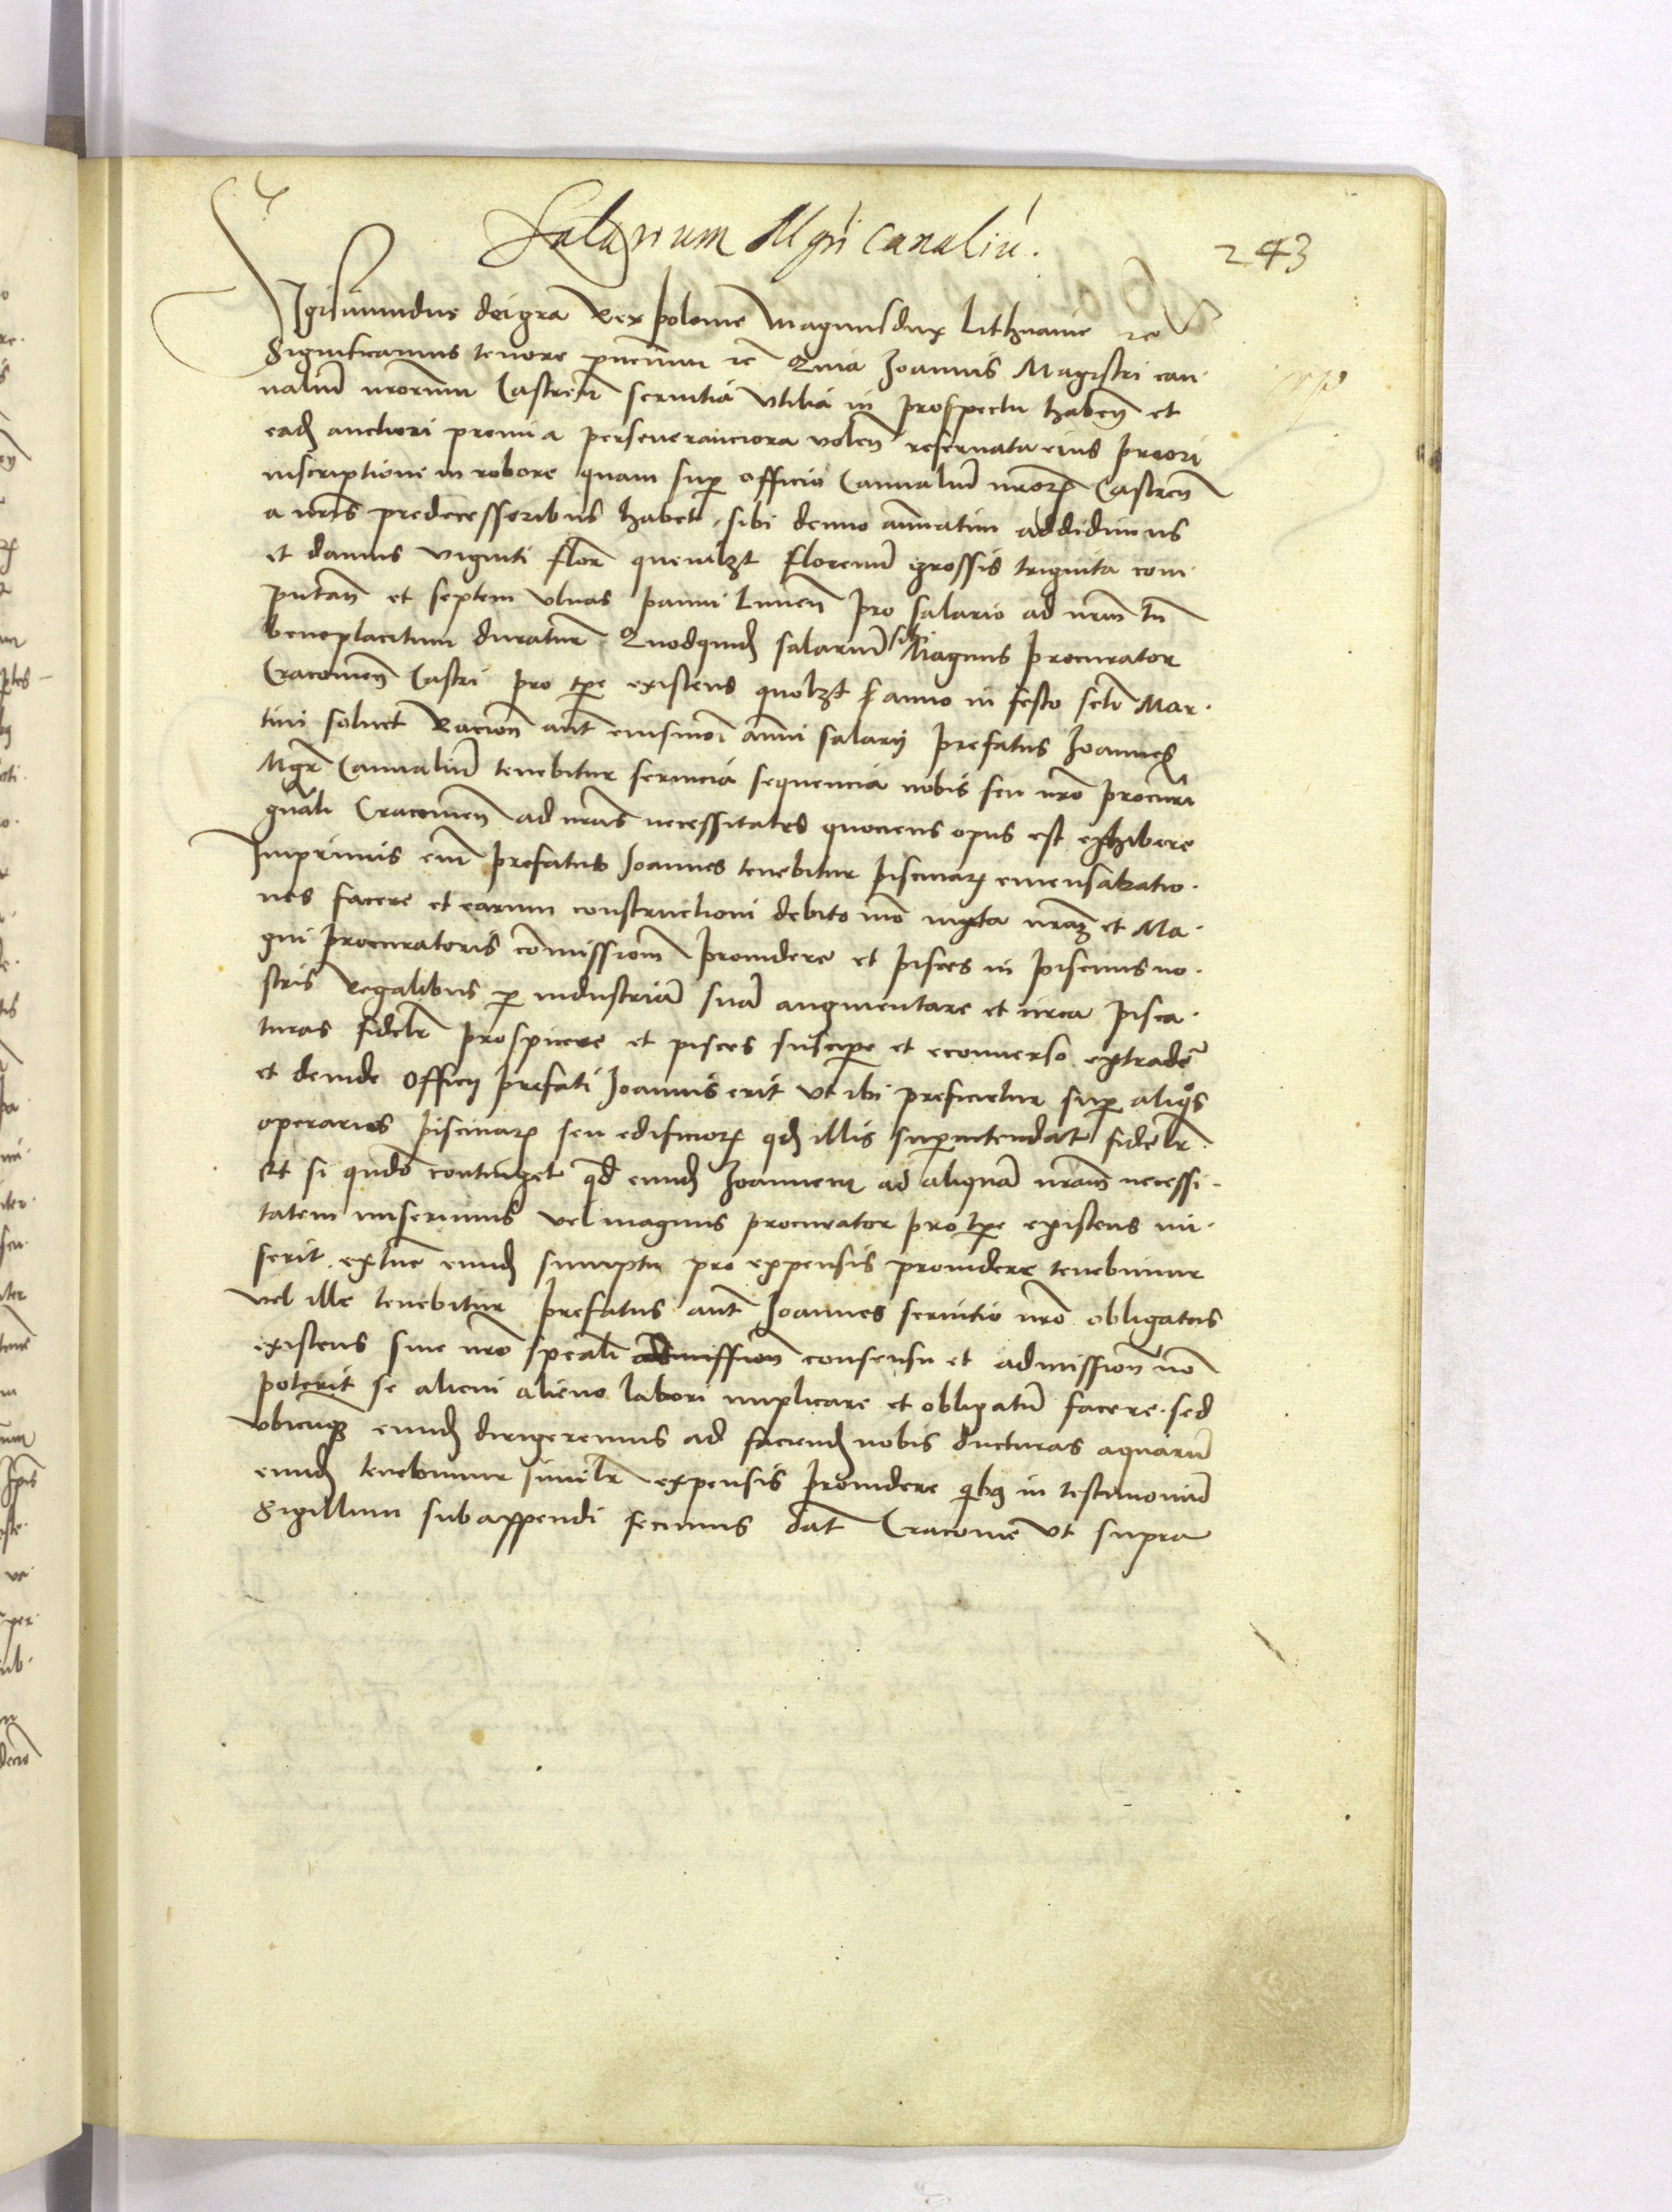 Salarium Mgri canaliu.
243
Sigismundus dei gra Rex Polonie Magnus dux Lithuanie rc
Significamus tenore pncium rc Quia Joannis Magistri can-
nalium nrorum Castren servitia utilia in prospectu haben et
eadem auctiori premia perseveranciora volen reservata eius priori
inscriptione in robore quam super officio Cannalium nrorum Castren
a nris predecessoribus habet, sibi denuo annuatim addidimus
et damus viginti flor quemlzt florenum grossis triginta com-
putan et septem ulnas panni Lunen pro salario ad nrm tn
beneplacitum duratur Quodquidem salarium sibi Magnus Procurator
Cracovien Castri pro tpe existens quolzt anno in festo scti Mar-
tini solvet Racion aut eiusmoi anni salarii prefatus Joannes
Mgr Cannalium tenebitur servicia sequencia nobis seu nro Procuri
gnali Cracovien ad nras necessitates quociens opus est exhibere
Imprimis eni prefatus Joannes tenebitur piscinarum emensuratio-
nes facere et earum constructioni debito mo iuxta nram et Ma-
gni Procuratoris comissionem providere et pisces in piscinis no-
stris Regalibus per industriam suam augmentare et circa pisca-
turas fideliter prospicere et pisces suscipere et econverso extradere
et deinde officii prefati Joannis erit ut ibi preficietur super aliquos
operarios piscinarum seu edificiorum qd illis superintendat fideliter
Et si quando continget quod eundem Joannem ad aliquam nram necessi-
tatem miserimus vel magnus procurator pro tpe existens mi-
serit extunc eundem sumptu pro expensis providere tenebimur
vel ille tenebitur Prefatus aut Joannes servitio nro obligatus
existens sine nro speciali admission consensu et admissione non
poterit se alicui alieno labori implicare et obligatum facere. sed
ubicunque eundem dirigeremus ad faciendum nobis ducturas aquarum
eundem tenebimur similiter expensis providere quibus in testimonium
Sigillum subappendi fecimus dat Cracovie ut supra